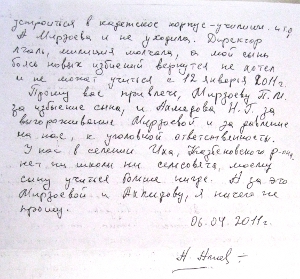 устроится в кадетское корпус-училищи. и т.д.
А Мирзоева и не уходила. Директор
лгала, милиция молчала, а мой сын
боясь новых избиений вернутся не хотел
и не может учится с 12 января 2011г.
Прошу вас привлечь, Мирзоеву П.М.
за избиение сына, и Ахмедова Н.Г. за
выгораживание Мирзоевой и за давление
на нас, к уголовной ответственности.
У нас в селении Иха, Казбековского р-на,
нет ни школы ни сельсовета, моему
сыну учится больше негде. А за это
Мирзоевой и Ахмедову, я ничего не
прощу.
06.04.2011г.